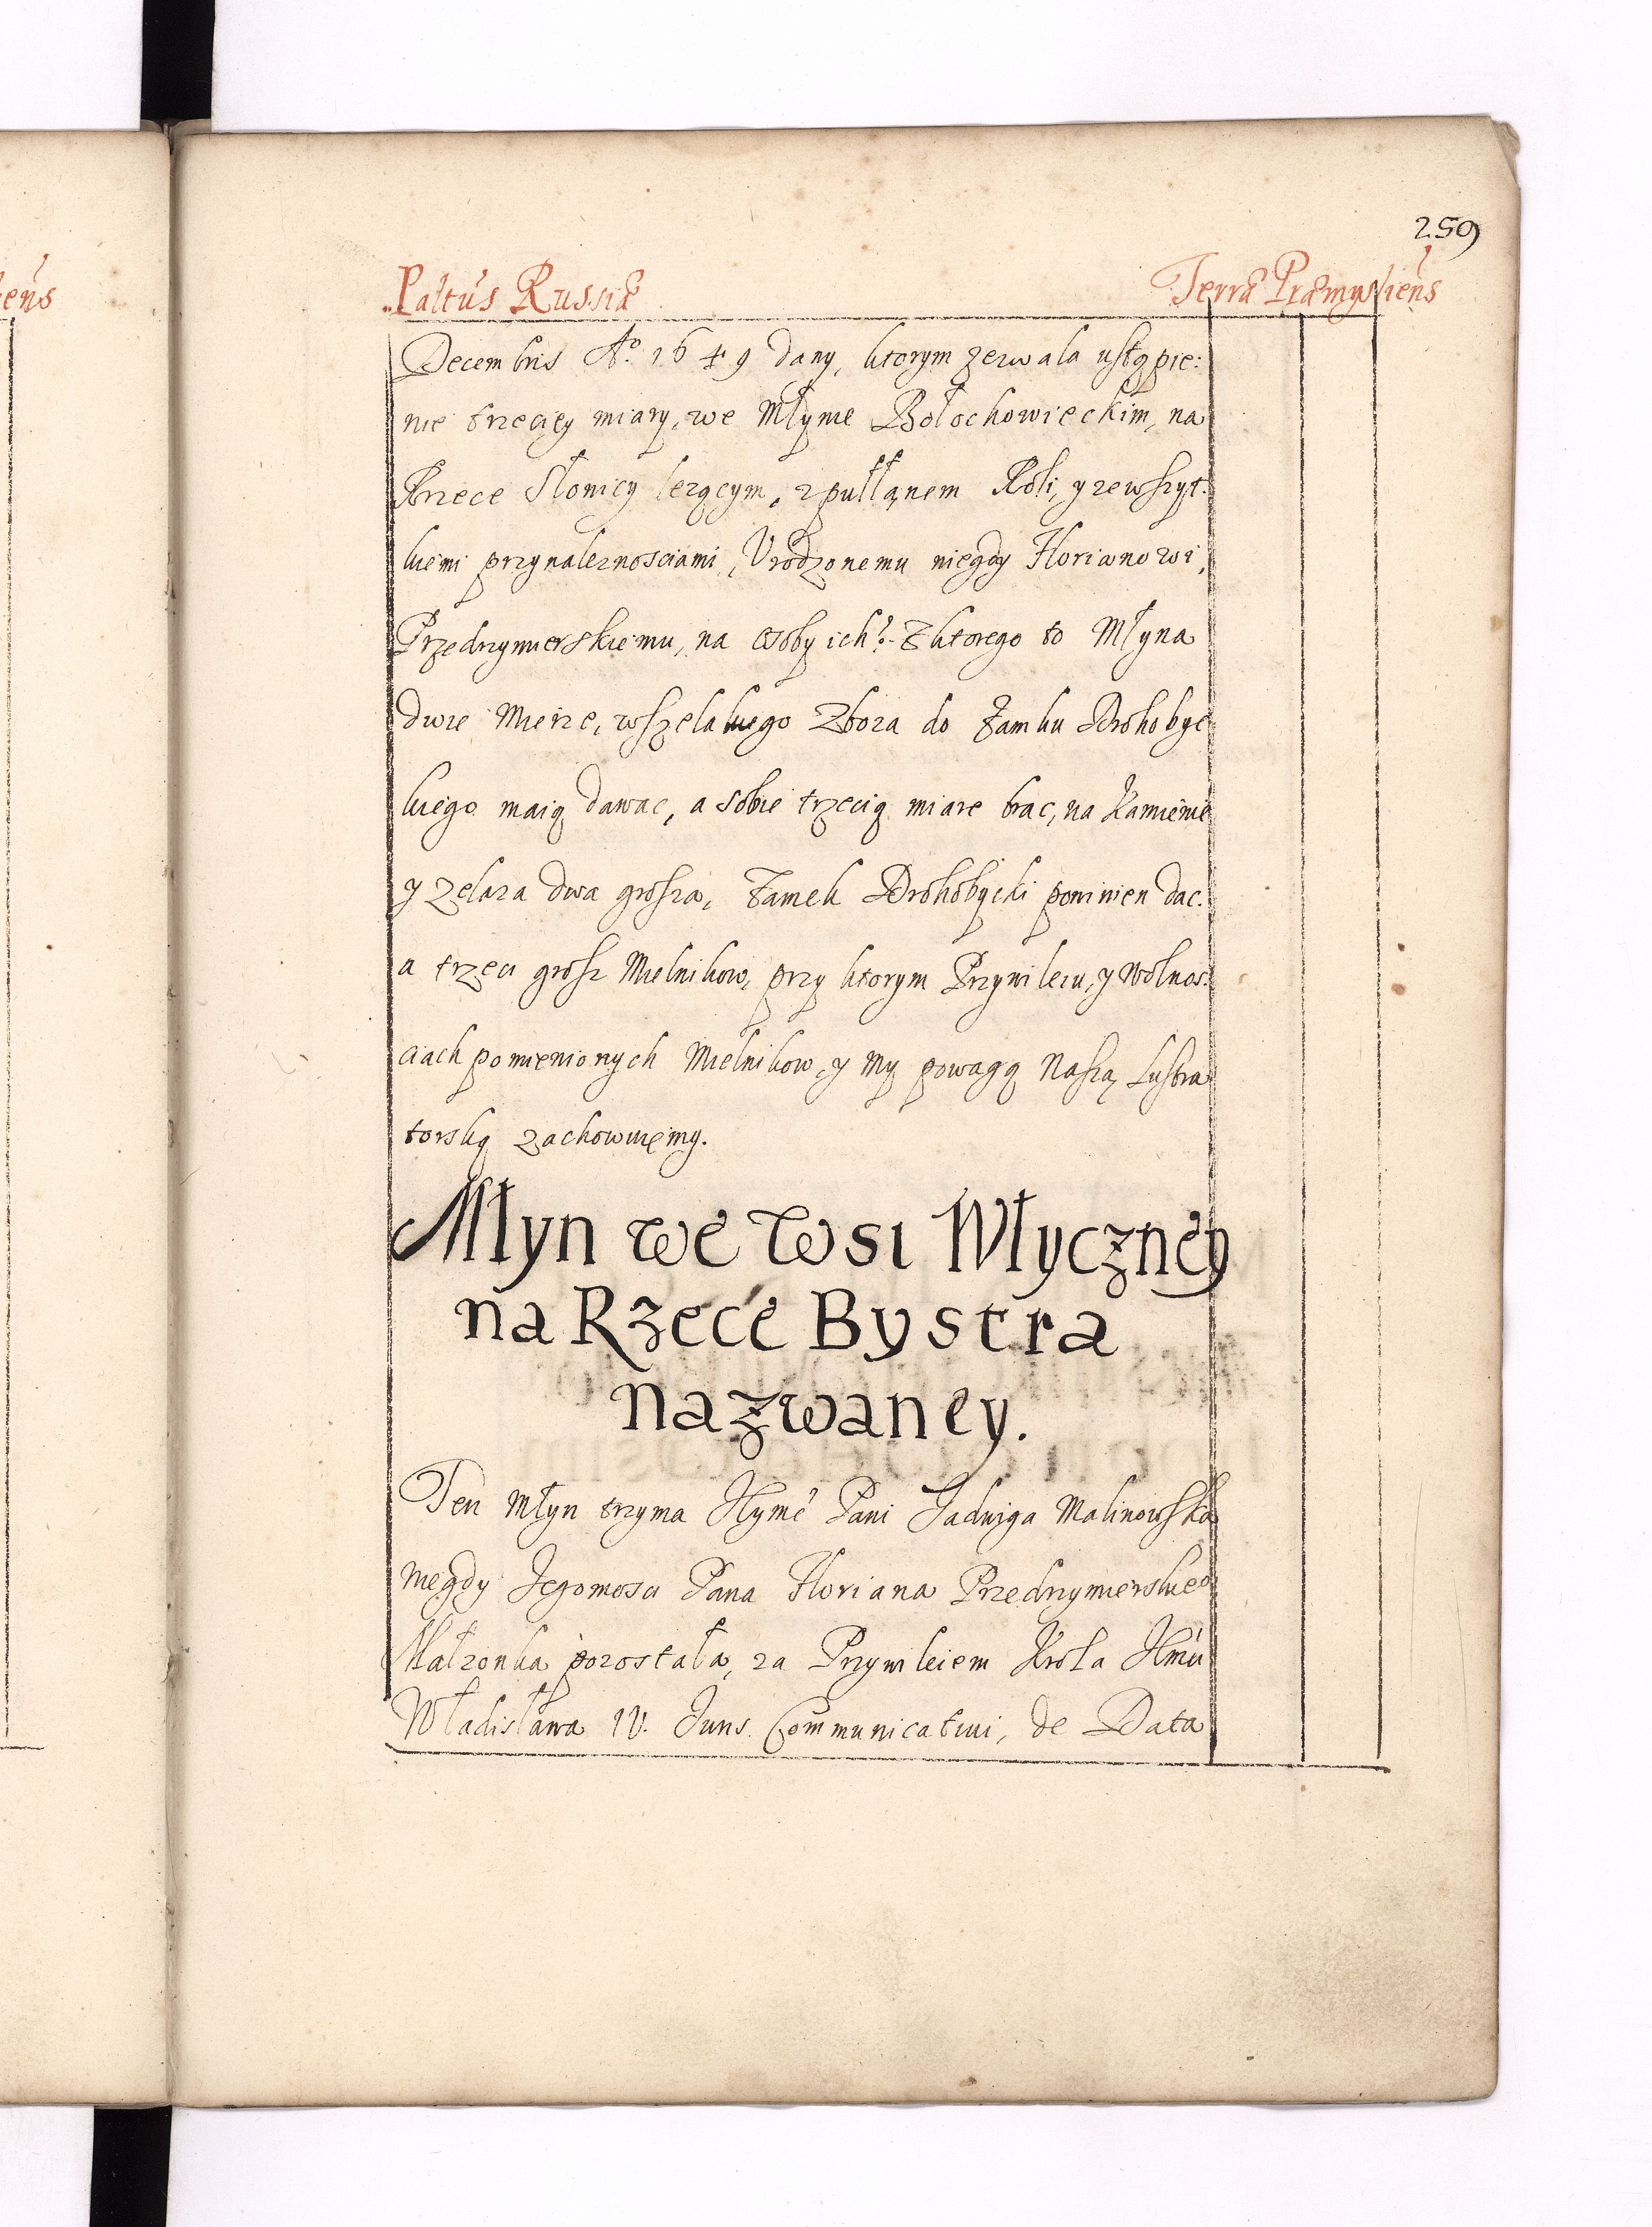 259
Paltus Russiæ Terræ Præmysliens
Decembris Aº 1649 dany, ktorym zezwala ustąpie:
nie trzeciey miary, we Młynie Bołochowieckim, na
Rzece Słonicy lezącym, z pułłanem Roli, y ze wszyt:
kiemi przynaleznosciami, Urodzonemu niegdy Florianowi,
Przedrzymierskiemu, na osoby ich. Z ktorego to Młyna
dwie Mierze, wszelakiego Zboza do Zamku Drohobyc
kiego maią dawac, a sobie trzecią miare brac, na Kamienie
y zelaza dwa grosza, Zamek Drohobycki powinien dac.
a trzeci grosz Mielnikow, przy ktorym Przywileiu, y Wolnos:
ciach pomienionych Mielnikow, y My powagą Naszą Lustra
torską zachowuiemy.
Młyn we Wsi Włyczney
na Rzece Bystra
nazwaney.
Ten Młyn trzyma Jeymć Pani Jadwiga Malinowska
niegdy Jegomosci Pana Floriana Przedrzymierskieo
Małzonka pozostała, za Przywileiem Krola Jmci
Władisława IV. Juris Communicativi, de Data
iens